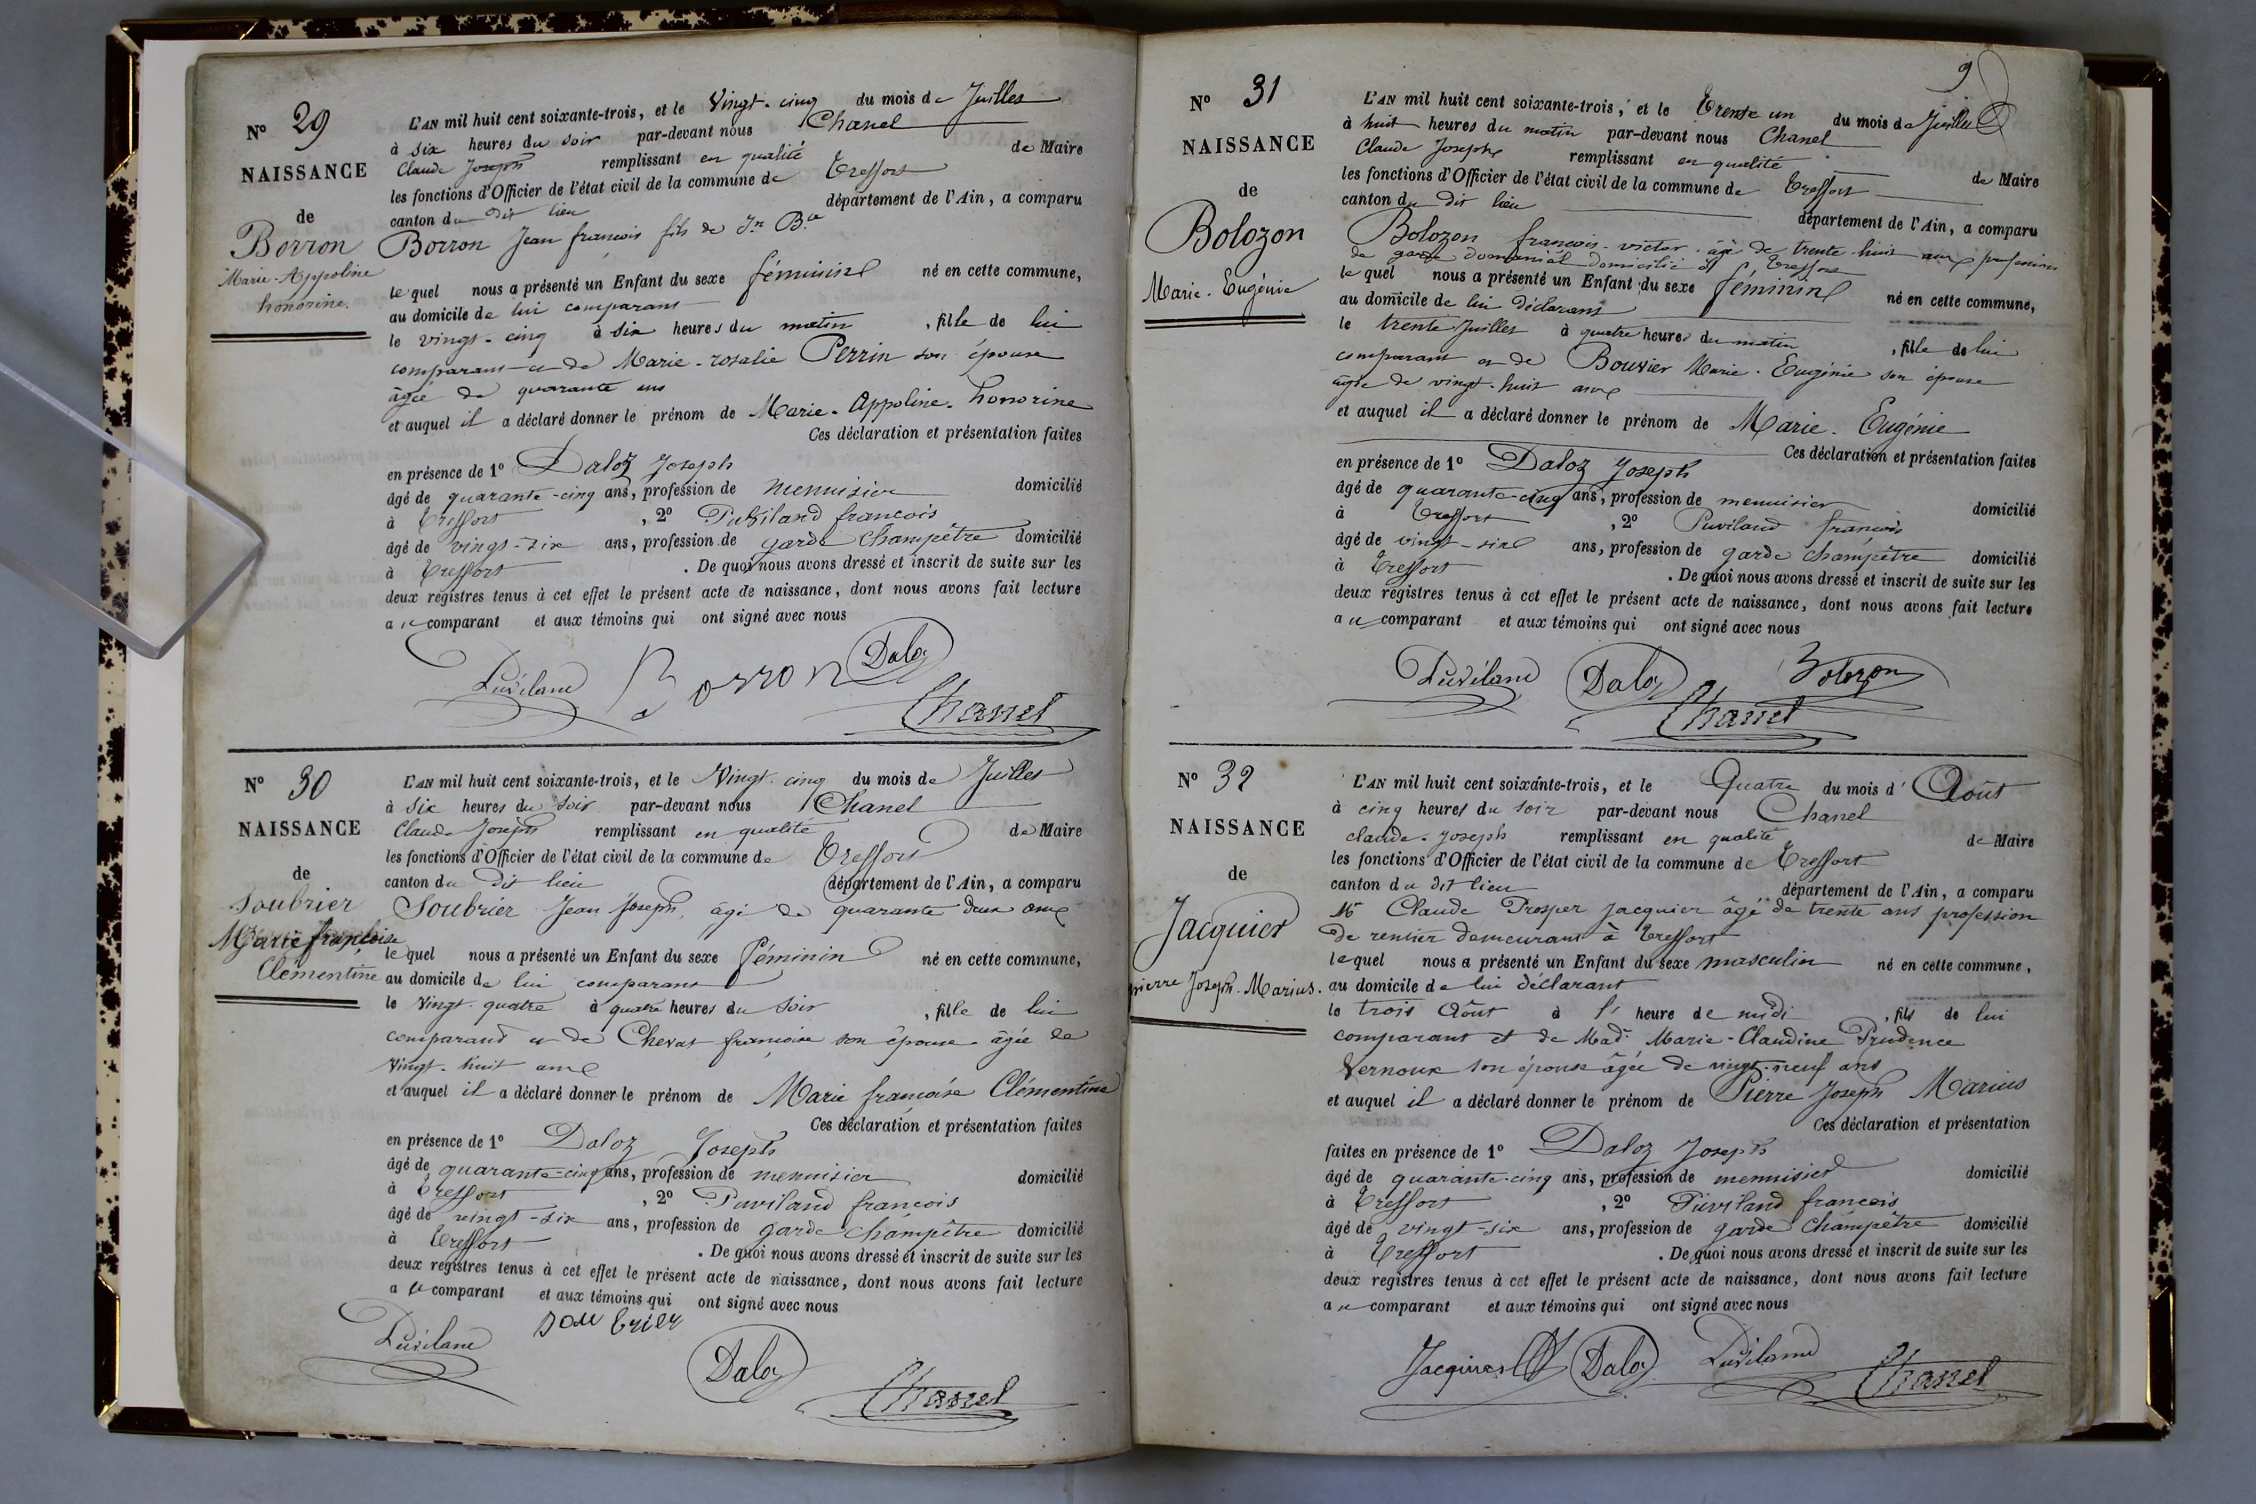 N° 29
NAISSANCE
de
Borron
Marie-Appoline
honorine.
L'AN mil huit cent soixante-trois, et le Vingt-cinq du mois de Juillet
à six heures du soir par-devant nous Chanel
Claude Joseph remplissant en qualité de Maire
les fonctions d'Officier de l'état civil de la commune de Treffort
canton du dit lieu département de l'Ain, a comparu
Borron Jean françois fils de Jn Bte
lequel nous a présenté un Enfant du sexe féminin né en cette commune,
au domicile de lui comparant
le vingt-cinq à six heures du matin, fille de lui
comparant et de Marie-rosalie Perrin son épouse
âgée de quarante ans
et auquel il a déclaré donner le prénom de Marie-Appoline-honorine
Ces déclaration et présentation faites
en présence de 1° Daloz Joseph
âgé de quarante-cinq ans, profession de menuisier domicilié
à Treffort, 2° Puviland françois
âgé de vingt-six ans, profession de garde champêtre domicilié
à Treffort. De quoi nous avons dressé et inscrit de suite sur les
deux registres tenus à cet effet le présent acte de naissance, dont nous avons fait lecture
au comparant et aux témoins qui ont signé avec nous
Puviland Borron Daloz
Chanel
N° 30
NAISSANCE
de
Soubrier
Marie françoise
Clémentine
L'AN mil huit cent soixante-trois, et le Vingt-cinq du mois de Juillet
à six heures du soir par-devant nous Chanel
Claude Joseph remplissant en qualité de Maire
les fonctions d'Officier de l'état civil de la commune de Treffort
canton du dit lieu département de l'Ain, a comparu
Soubrier Jean Joseph, âgé de quarante deux ans
lequel nous a présenté un Enfant du sexe féminin né en cette commune,
au domicile de lui comparant
le vingt-quatre à quatre heures du soir, fille de lui
comparand et de Chevat françoise son épouse âgée de
vingt-huit ans
et auquel il a déclaré donner le prénom de Marie françoise Clémentine
Ces déclaration et présentation faites
en présence de 1° Daloz Joseph
âgé de quarante-cinq ans, profession de menuisier domicilié
à Treffort, 2° Puviland françois
âgé de vingt-six ans, profession de garde champêtre domicilié
à Treffort. De quoi nous avons dressé et inscrit de suite sur les
deux registres tenus à cet effet le présent acte de naissance, dont nous avons fait lecture
au comparant et aux témoins qui ont signé avec nous
Puviland Soubrier
Daloz Chanel
9
N° 31
NAISSANCE
de
Bolozon
Marie-Eugénie
L'AN mil huit cent soixante-trois, et le Trente un du mois de Juillet
à huit heures du matin par-devant nous Chanel
Claude Joseph remplissant en qualité de Maire
les fonctions d'Officier de l'état civil de la commune de Treffort
canton du dit lieu département de l'Ain, a comparu
Bolozon françois-victor-âgé de trente-huit ans profession
de garde domanial domicilié à Treffort
lequel nous a présenté un Enfant du sexe féminin né en cette commune,
au domicile de lui déclarant
le trente Juillet à quatre heures du matin, fille de lui
comparant et de Bouvier Marie-Eugénie son épouse
âgée de vingt-huit ans
et auquel il a déclaré donner le prénom de Marie-Eugénie
Ces déclaration et présentation faites
en présence de 1° Daloz Joseph
âgé de quarante-cinq ans, profession de menuisier domicilié
à Treffort, 2° Puviland françois
âgé de vingt-six ans, profession de garde champêtre domicilié
à Treffort. De quoi nous avons dressé et inscrit de suite sur les
deux registres tenus à cet effet le présent acte de naissance, dont nous avons fait lecture
au comparant et aux témoins qui ont signé avec nous
Puviland Daloz Bolozon
Chanel
N° 32
NAISSANCE
de
Jacquier
Pierre Joseph-Marius.
L'AN mil huit cent soixante-trois, et le Quatre du mois d'Août
à cinq heures du soir par-devant nous Chanel
claude-Joseph remplissant en qualité de Maire
les fonctions d'Officier de l'état civil de la commune de Treffort
canton du dit lieu département de l'Ain, a comparu
Mr Claude Prosper Jacquier âgé de trente ans profession
de rentier demeurant à Treffort
lequel nous a présenté un Enfant du sexe masculin né en cette commune,
au domicile de lui déclarant
le trois Août à l'heure de midi, fils de lui
comparant et de Made Marie-Claudine Prudence
Vernoux son épouse âgée de vingt-neuf ans
et auquel il a déclaré donner le prénom de Pierre Joseph Marius
Ces déclaration et présentation
faites en présence de 1° Daloz Joseph
âgé de quarante-cinq ans, profession de menuisier domicilié
à Treffort, 2° Puviland françois
âgé de vingt-six ans, profession de garde champêtre domicilié
à Treffort. De quoi nous avons dressé et inscrit de suite sur les
deux registres tenus à cet effet le présent acte de naissance, dont nous avons fait lecture
au comparant et aux témoins qui ont signé avec nous
Jacquier Daloz Puviland Chanel